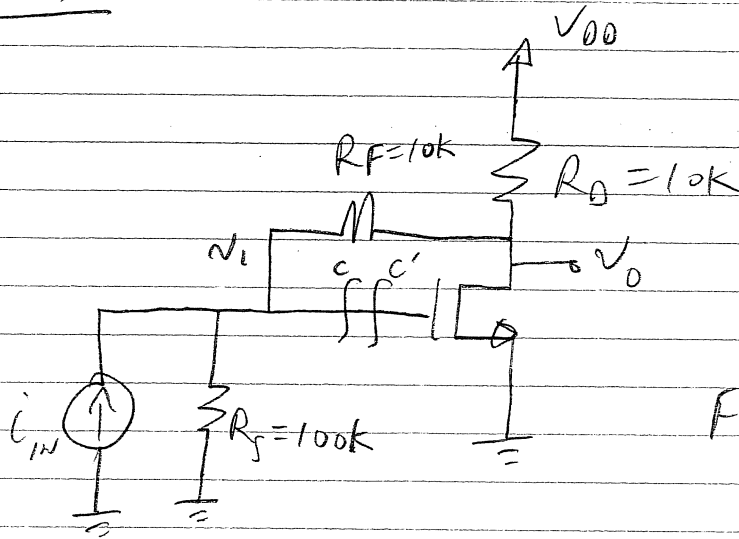 V_DD
R_F=10K
R_D=10K
N_1
C C'
V_O
i_IN
R_S=100K
F